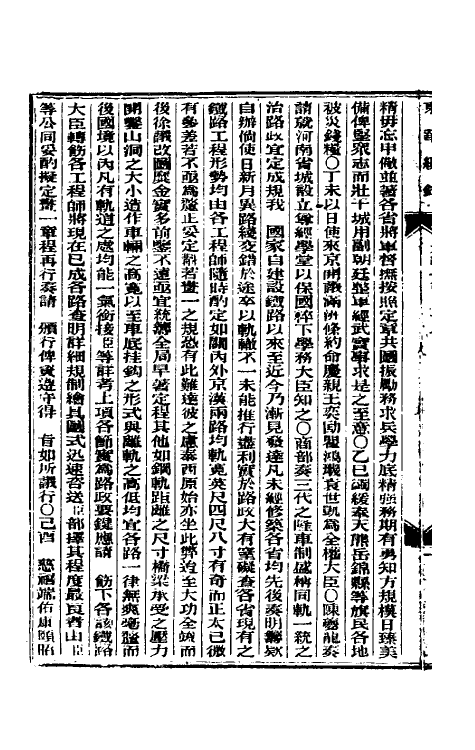 精毋忘申儆並著各省將軍督撫按照定章共圖振勵務求兵學力底精強務期有勇知方規模日臻美
備俾堅衆志而壯干城用副朝廷整軍經武實事求是之至意〇乙巳蠲緩奉天熊岳錦縣等旗民各地
被災錢糧〇丁未以日使來京開議滿洲條約命慶親王奕劻瞿鴻禨袁世凱爲全權大臣〇陳夔龍奏
請就河南省城設立尊經學堂以保國粹下學務大臣知之〇商部奏三代之隆車制盛稱同軌一統之
治路政宜定成規我　國家自建設鐵路以來至近今乃漸見發達凡未經修築各省均先後奏明籌欵
自辦倘使日新月異路綫交錯於途卒以軌轍不一未能推行盡利實於路政大有窒礙查各省現有之
鐵路工程形勢均由各工程師隨時酌定如關內外京漢兩路均軌寬英尺四尺八寸有奇而正太已微
有參差若不亟爲釐正妥定齊若畫一之規恐有此難達彼之慮泰西原始亦坐此弊迨至大功全竣而
後徐議改圖糜金實多前鑒不遠亟宜統籌全局早著定程其他如鋼軌距離之尺寸橋梁承受之壓力
開鑿山洞之大小造作車輛之高寬以至車底挂鈎之形式與離軌之高低均宜各路一律無爽毫釐而
後國境以內凡有軌道之處均能一氣銜接臣等詳考上項各節實爲路政要鍵應請　飭下各該鐵路
大臣轉飭各工程師將現在已成各路查明詳細規制繪具圖式迅速咨送臣部擇其程度最良者由臣
等公同妥酌擬定畫一章程再行奏請　頒行俾資遵守得　旨如所議行〇己酉　慈禧端佑康頤昭